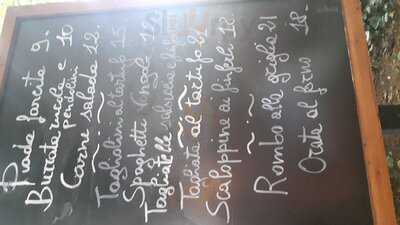 Piada farcita 9.
Burrata rucola e 10
pendolini
Carne salada 12.
Tagliolini al tartufo 15
Spaghetti Vongole
Tagliatelle salsiccia e
Tagliata al tartufo
Scaloppine ai funghi 12.
Rombo alla griglia 21
Orata al forno 18.